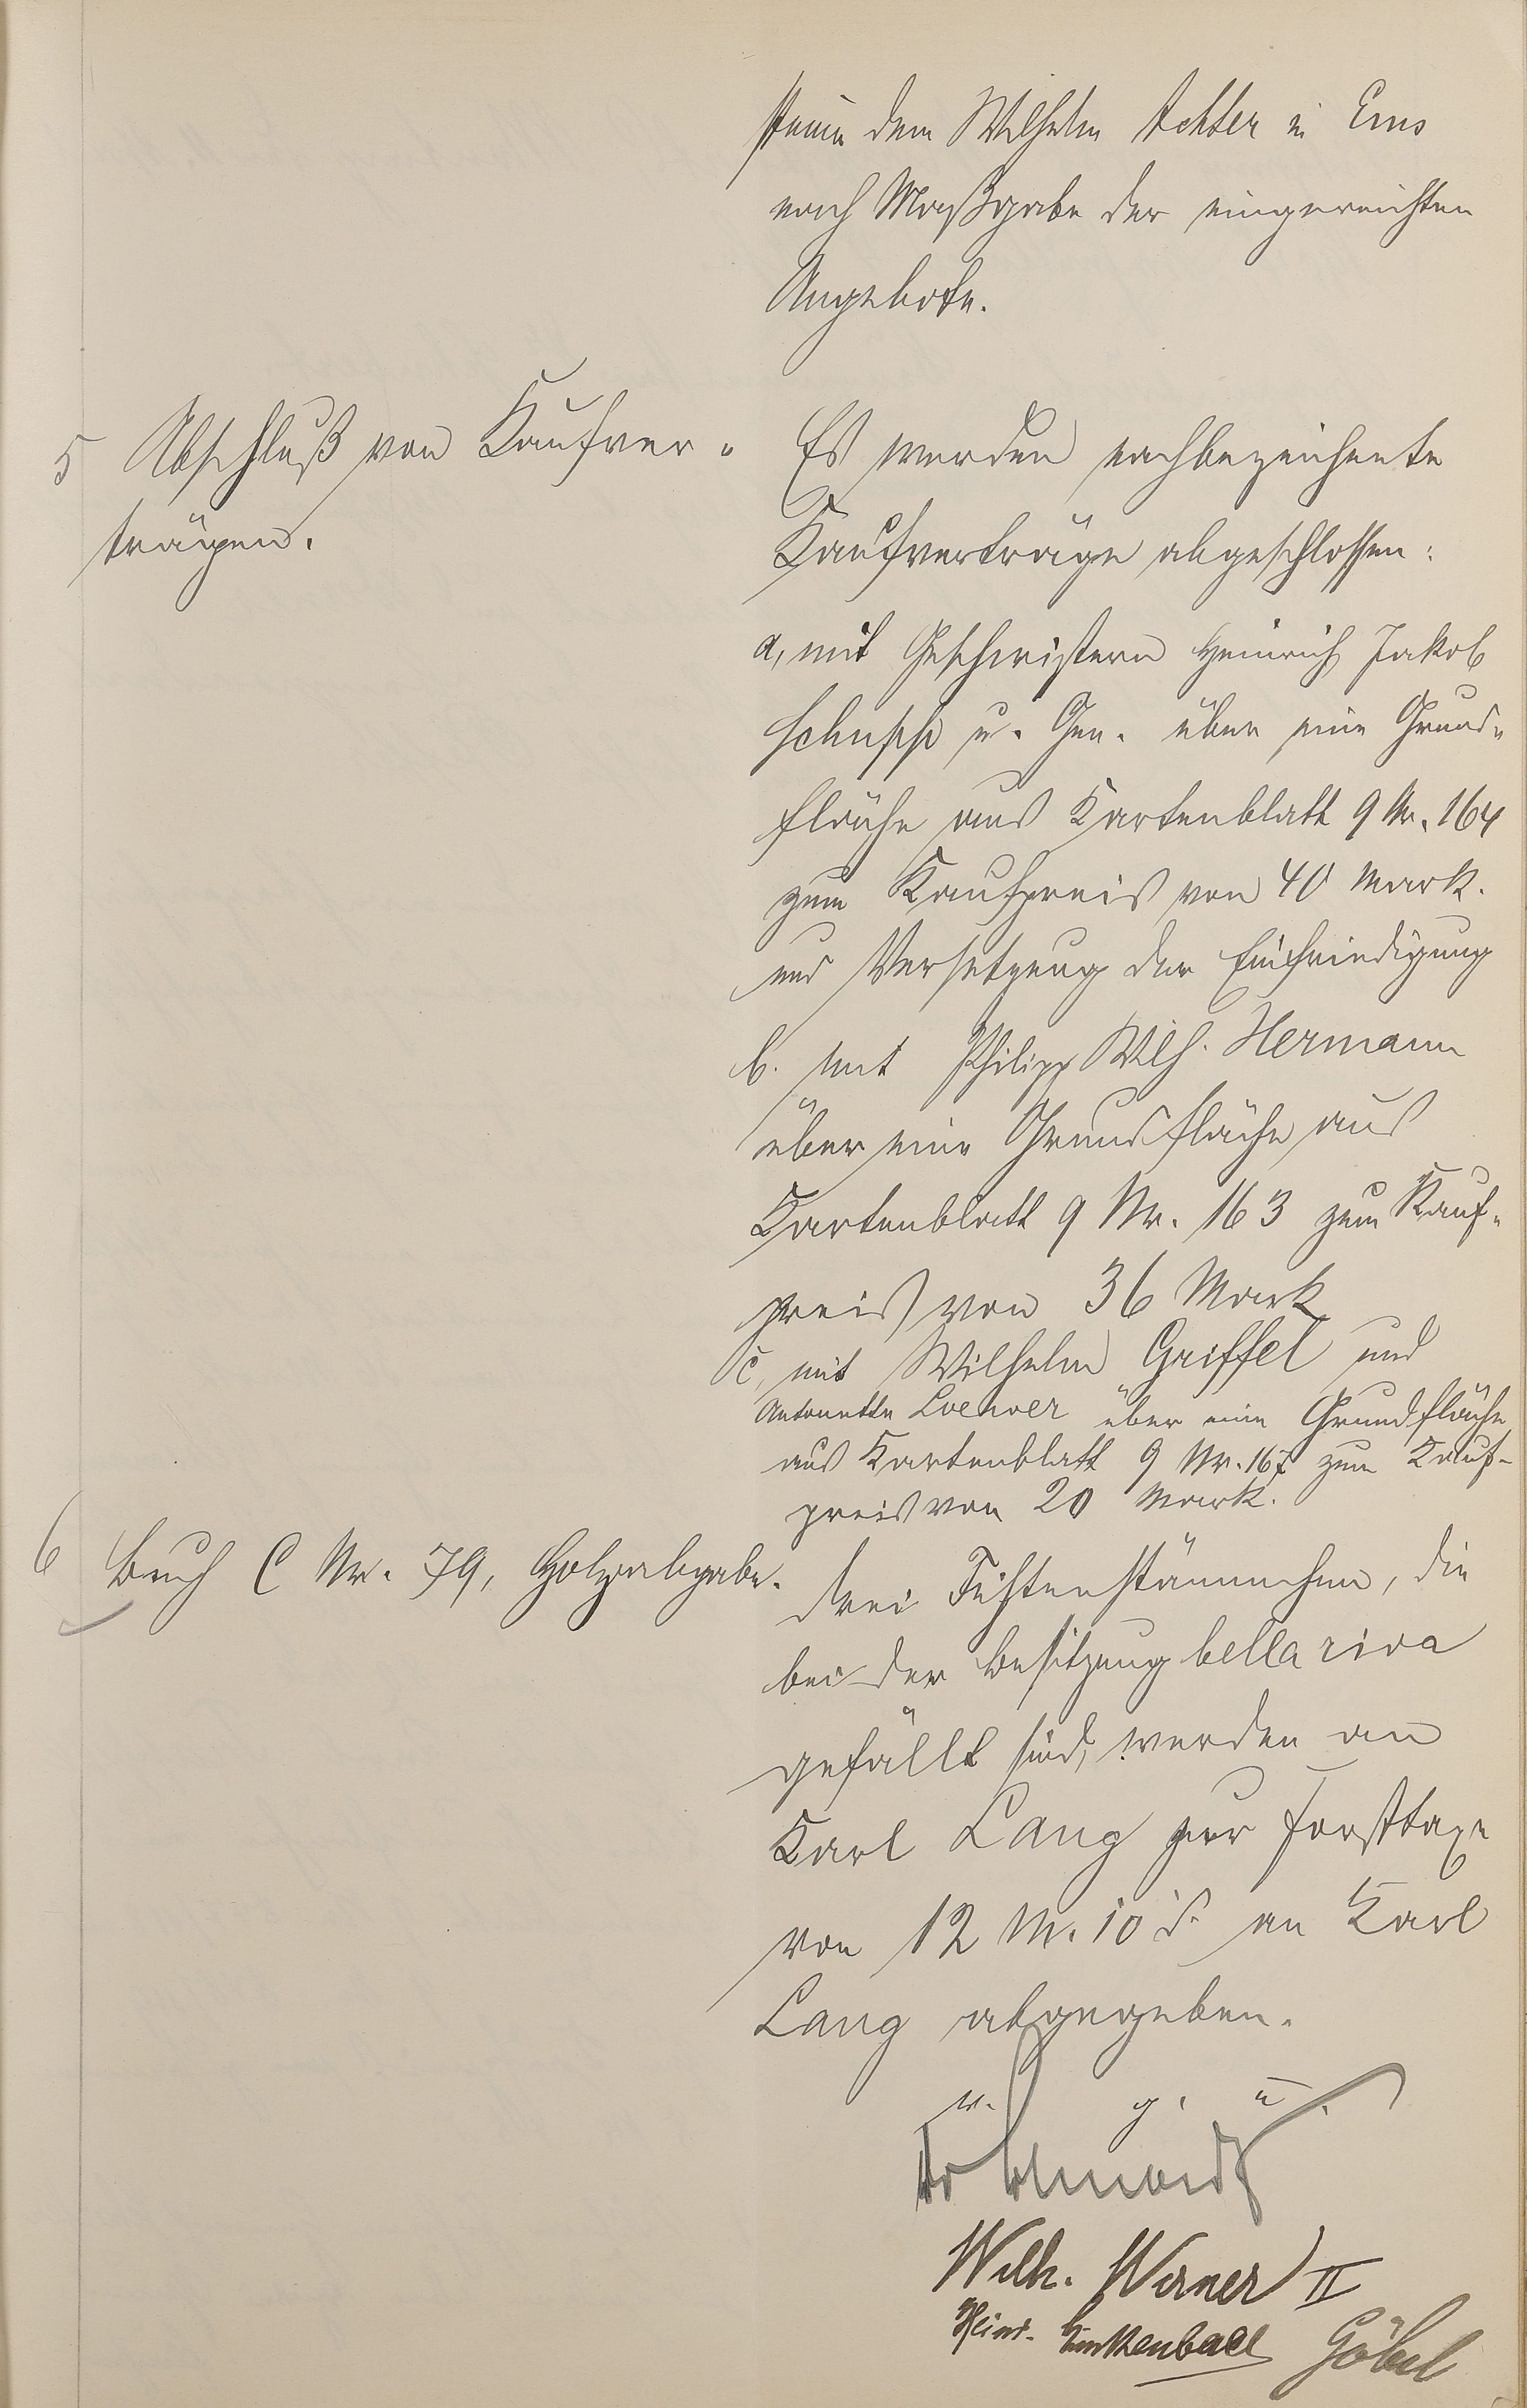 steine dem Wilhelm Achter in Ems
nach Maßgabe der eingereichten
Angebote.
5 Abschluß von Kaufver-
trägen.
Es werden nachbezeichnete
Kaufverträge abgeschlossen:
a, mit Geschwistern Heinrich Jakob
Schupp u. Gen. über eine Grund-
fläche aus Kartenblatt 9 Nr. 164
zum Kaufpreis von 40 Mark.
und Versetzung der Einfriedigung
b. mit Philipp Wilh. Hermann
über eine Grundfläche aus
Kartenblatt 9 Nr. 163 zum Kauf-
preis von 36 Mark
c, mit Wilhelm Griffel und
Antonette Loewer über eine Grundfläche
aus Kartenblatt 9 Nr. 167 zum Kauf-
preis von 20 Mark.
6 Buch C Nr. 79, Holzabgabe.
Drei Fichtenstämmchen, die
bei der Besitzung bella riva
gefällt sind, werden an
Karl Lang zur Forsttaxe
von 12 M. 10 d. an Karl
Lang abgegeben.
v. g. u.
Wilh. Werner II
Heinr. Linkenbach Göbel